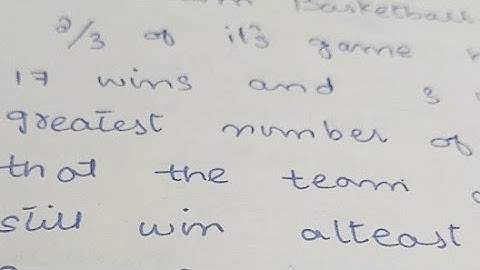 Basketball
2/3 of its game
17 wins and 3
greatest number of
that the team
still win alteast